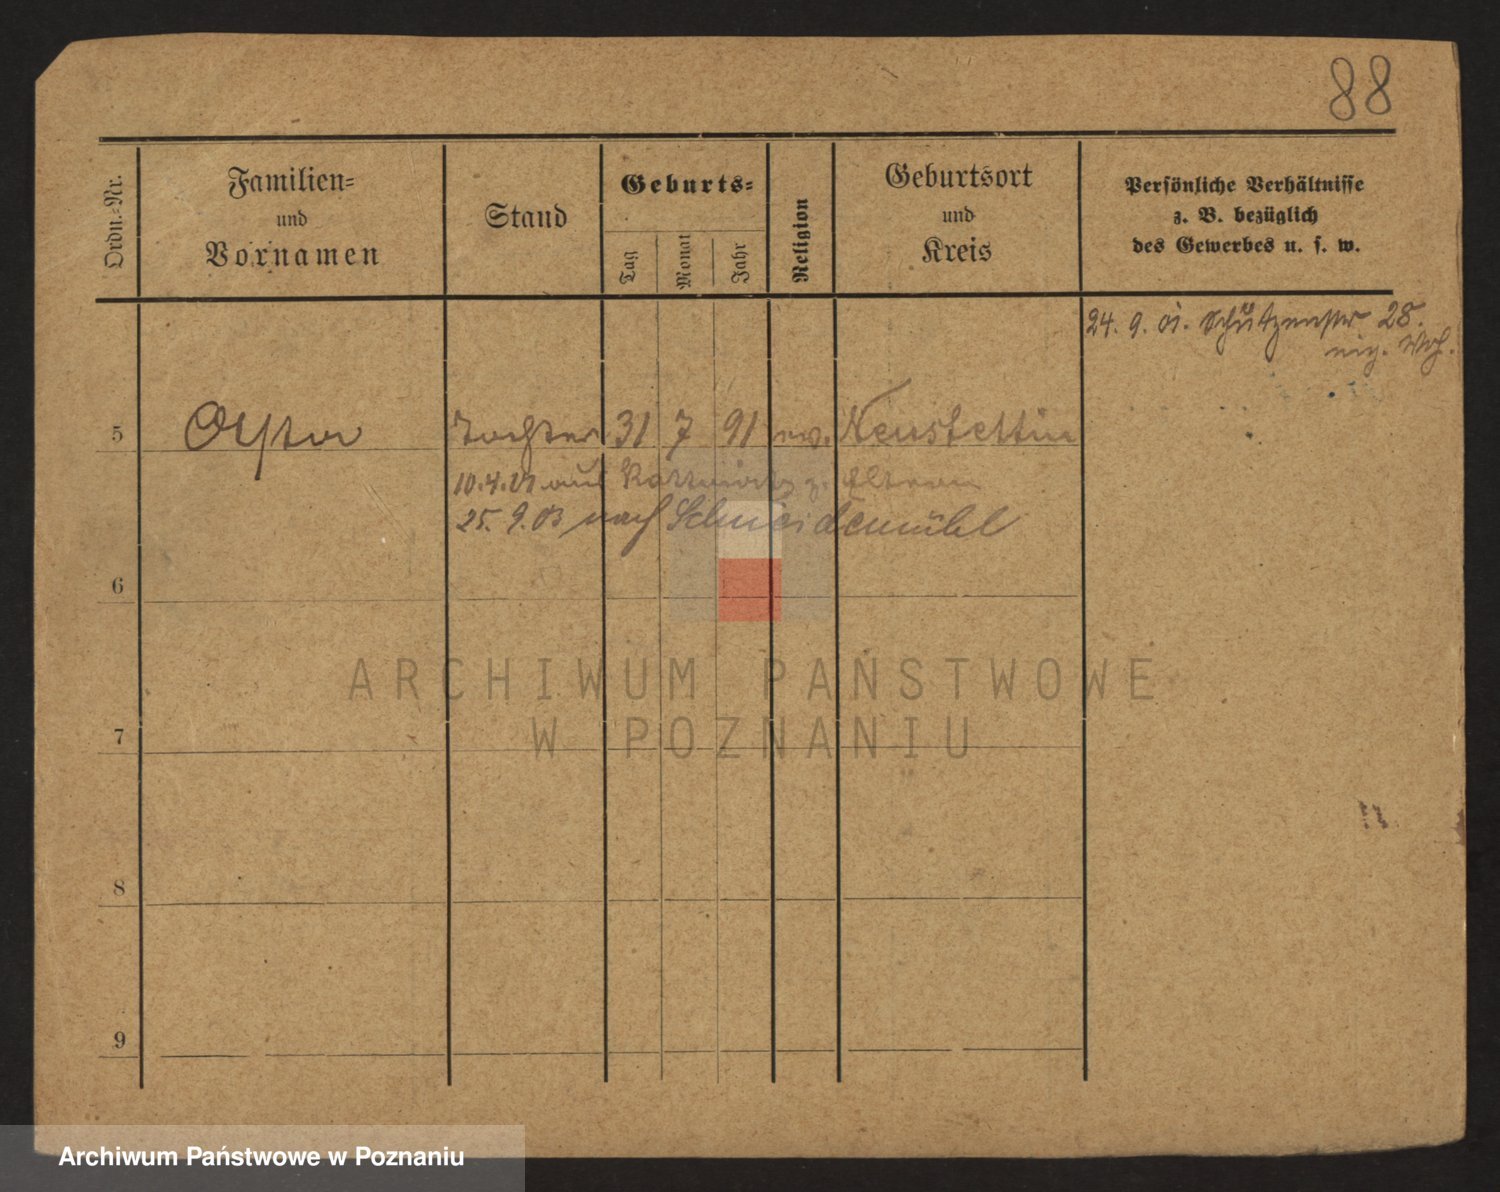 88
Ordn.-Nr.
Familien-
und
Vornamen
Stand
Geburts-
Tag
Monat
Jahr
Religion
Geburtsort
und
Kreis
Persönliche Verhältnisse
z. B. bezüglich
des Gewerbes u. s. w.
24. 9. 01. Schützenstr 28.
5 Tochter 31 7 91 ev. Neustettin
10.4.01 aus z. Eltern
25. 9. 03 nach Schneidemühl
6
7
8
9
ARCHIWUM PAŃSTWOWE
W POZNANIU
Archiwum Państwowe w Poznaniu